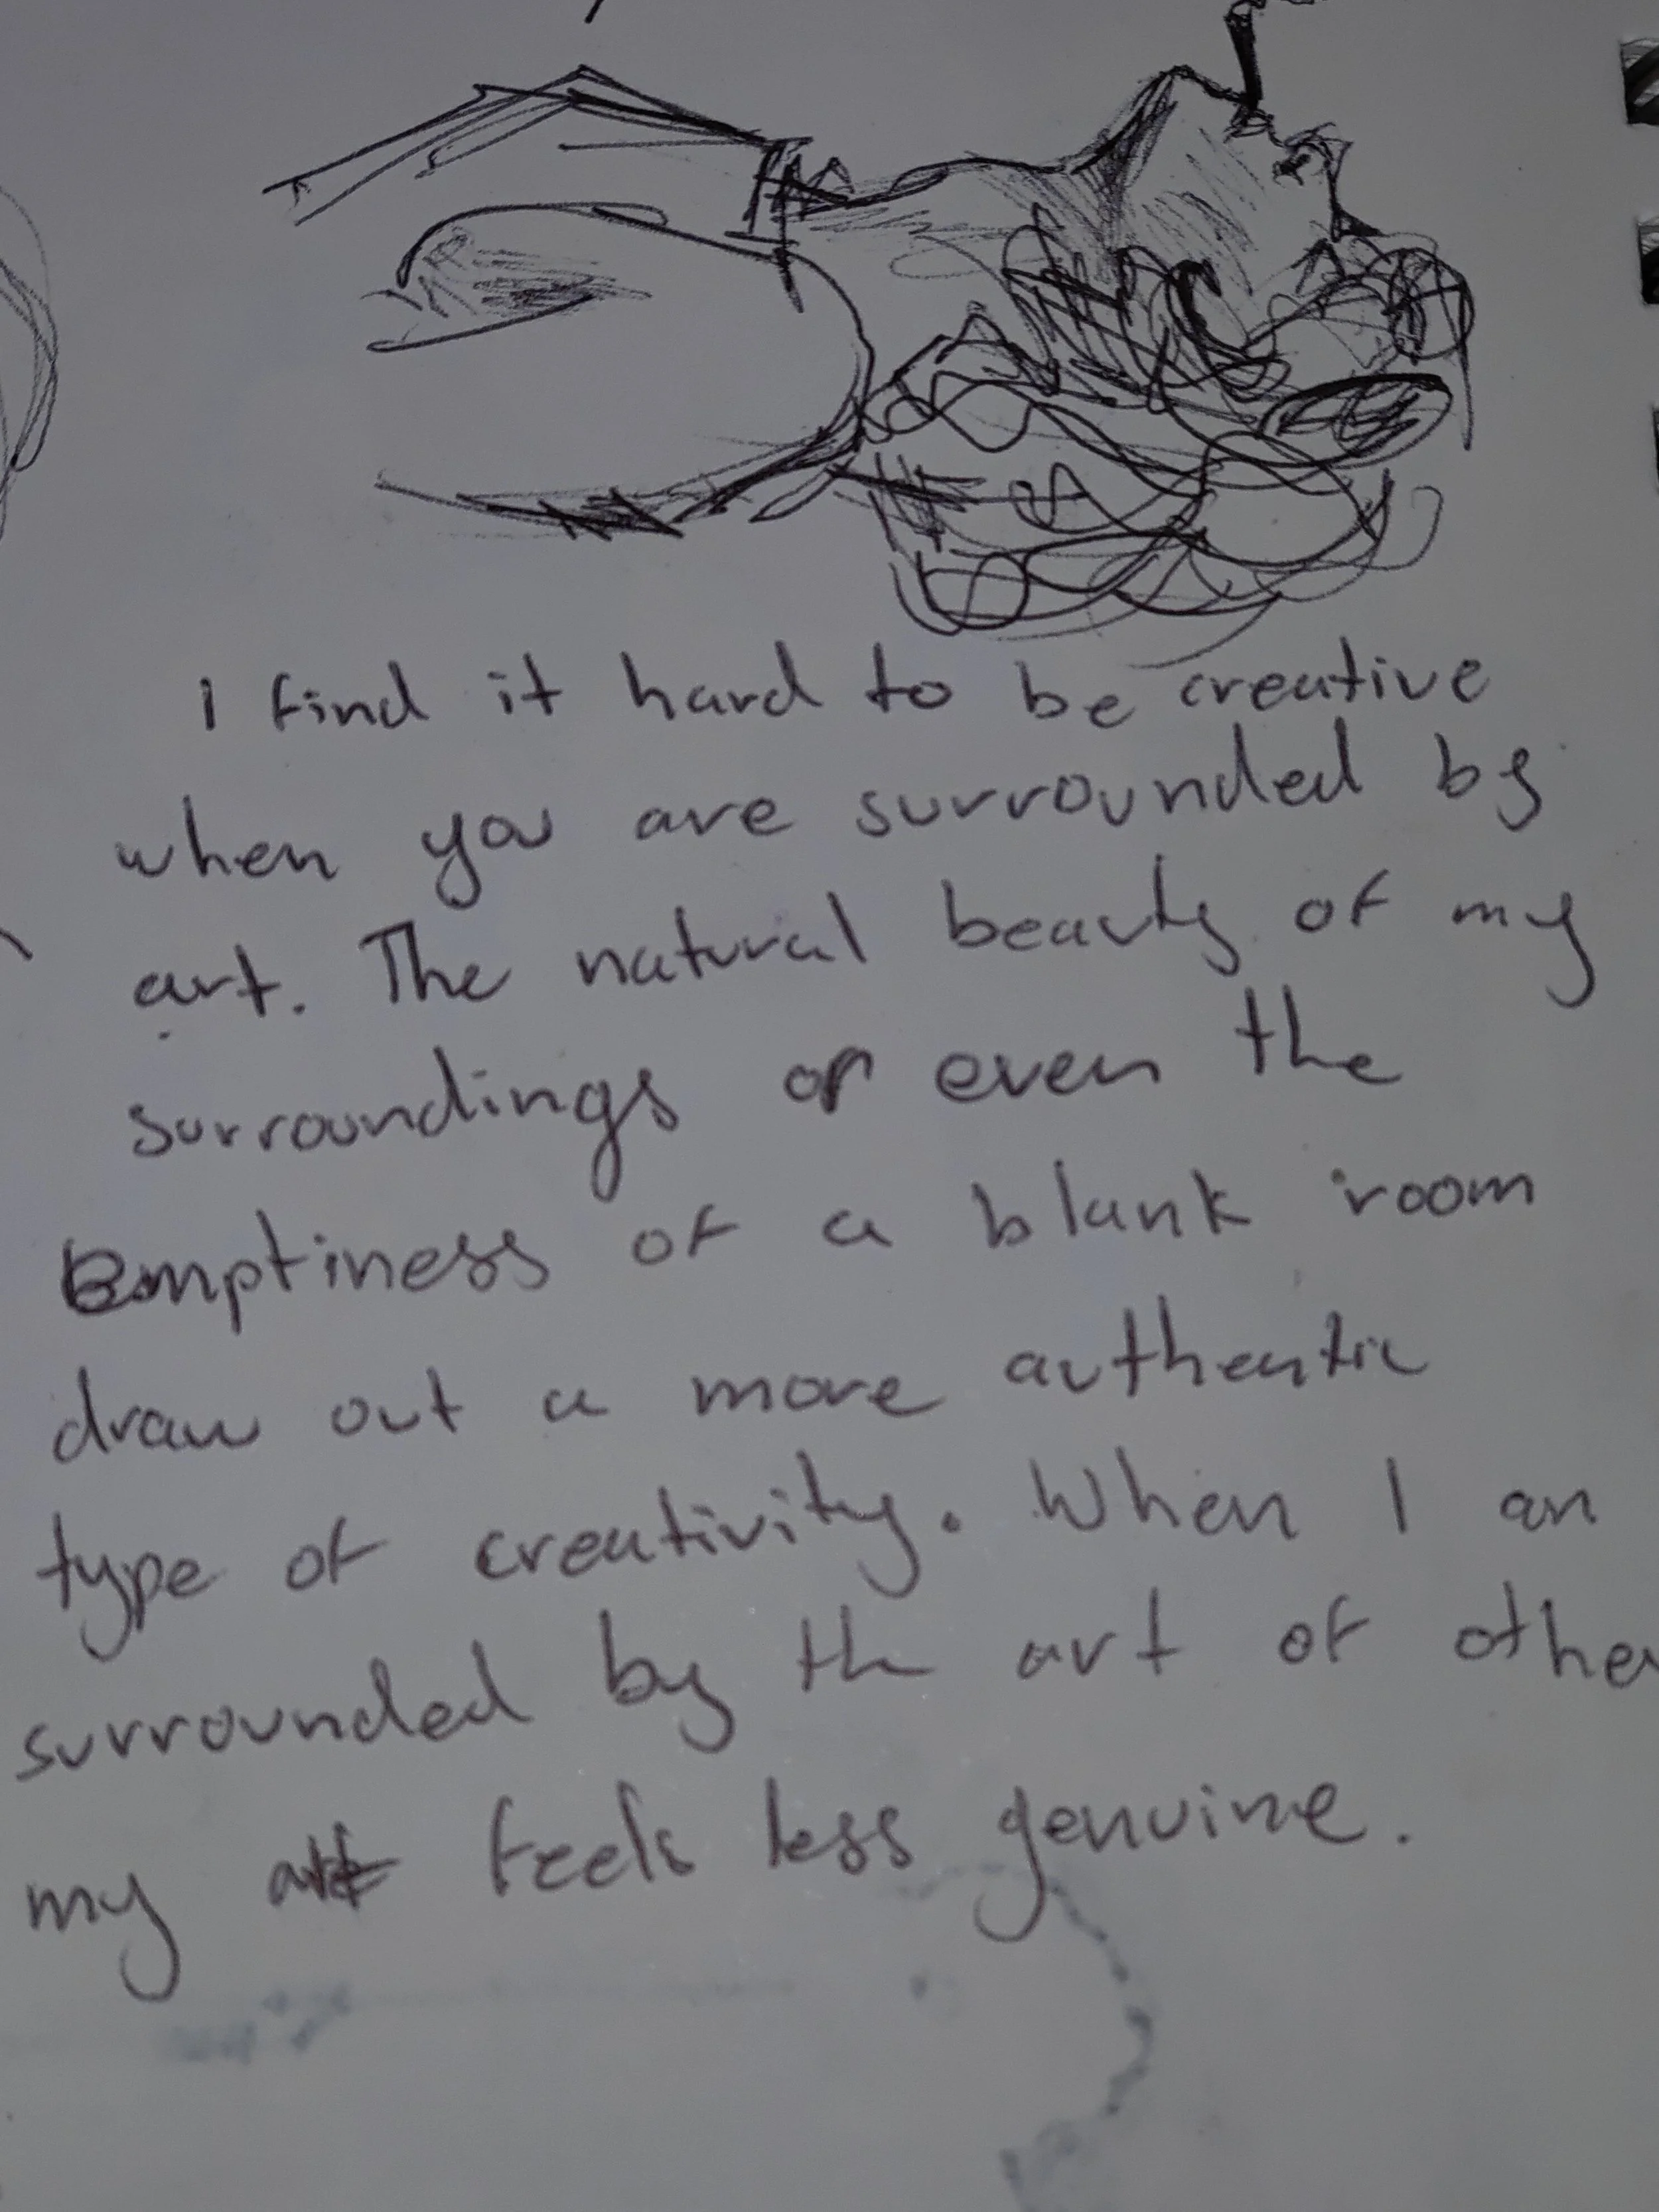 I find it hard to be creative
when you are surrounded by
art. The natural beauty of my
surroundings or even the
Emptiness of a blank room
draw out a more authentic
type of creativity. When I am
surrounded by the art of other
my art feels less genuine.